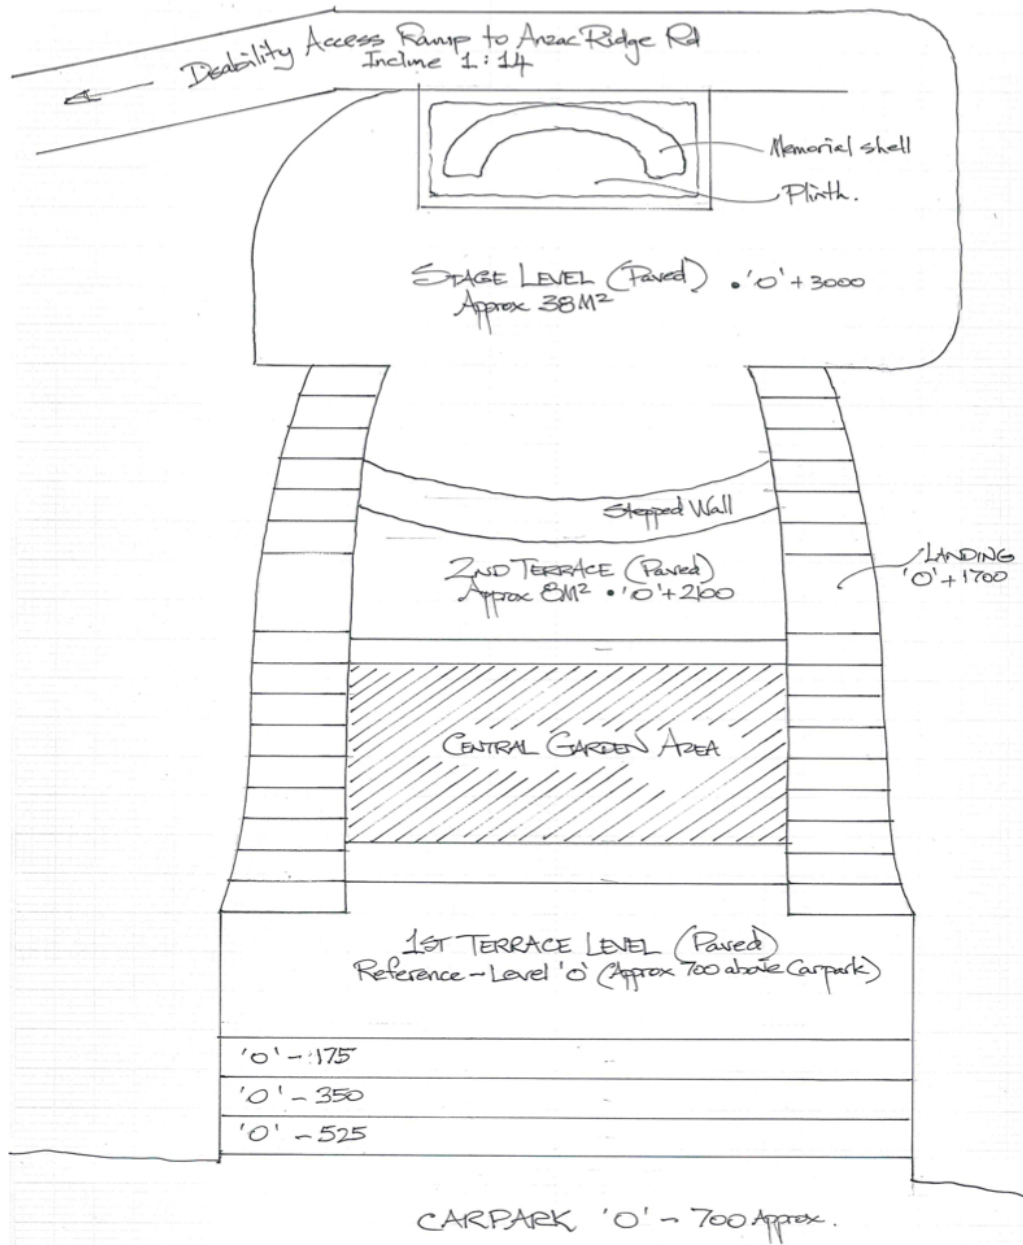 Disability Access Ramp to Anzac Ridge Rd
Incline 1:14
Memorial shell
Plinth.
STAGE LEVEL (Paved) • 'O' + 3000
Approx 38M²
Stepped Wall
2ND TERRACE (Paved)
Approx 8M² • 'O' + 2100
LANDING
'O' + 1700
CENTRAL GARDEN AREA
1ST TERRACE LEVEL (Paved)
Reference - Level 'O' (Approx 700 above Carpark)
'O' - 175
'O' - 350
'O' - 525
CARPARK 'O' - 700 Approx.